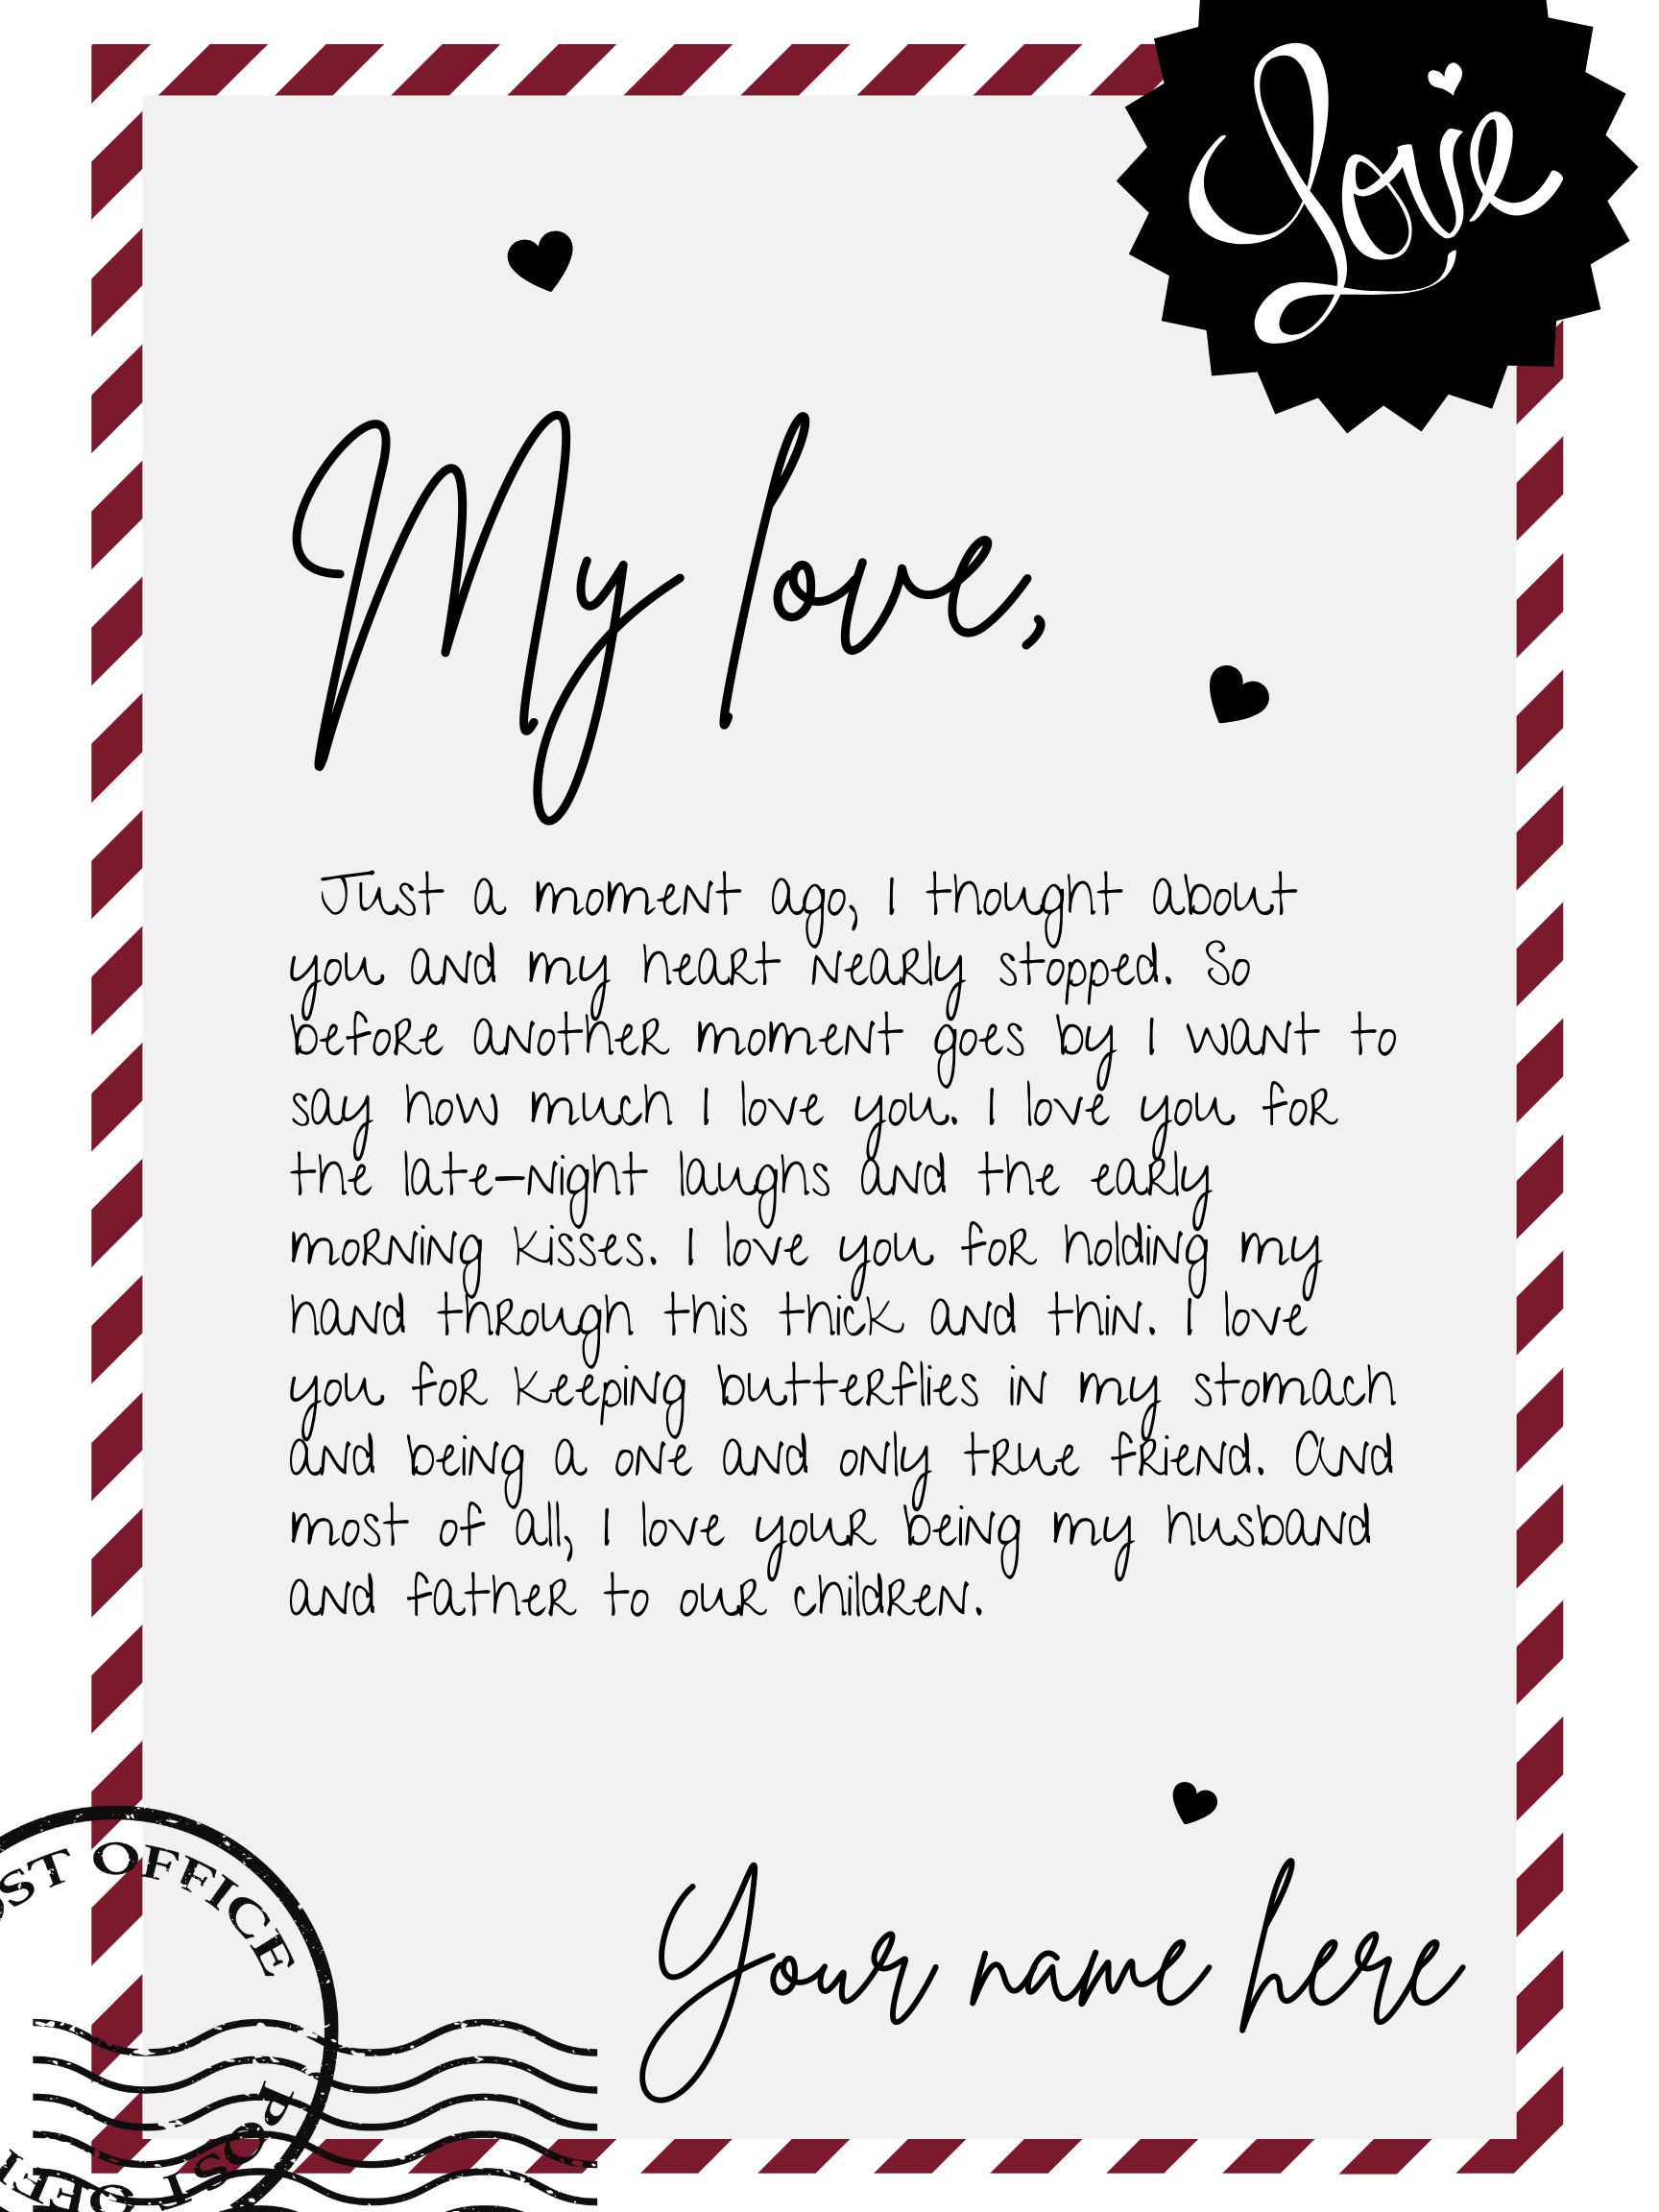 Love
My love,
Just a moment ago, I thought about
you and my heart nearly stopped. So
before another moment goes by I want to
say how much I love you. I love you for
the late-night laughs and the early
morning kisses. I love you for holding my
hand through this thick and thin. I love
you for keeping butterflies in my stomach
and being a one and only true friend. And
most of all, I love your being my husband
and father to our children.
Your name here
OST OFFICE
POST OFFI